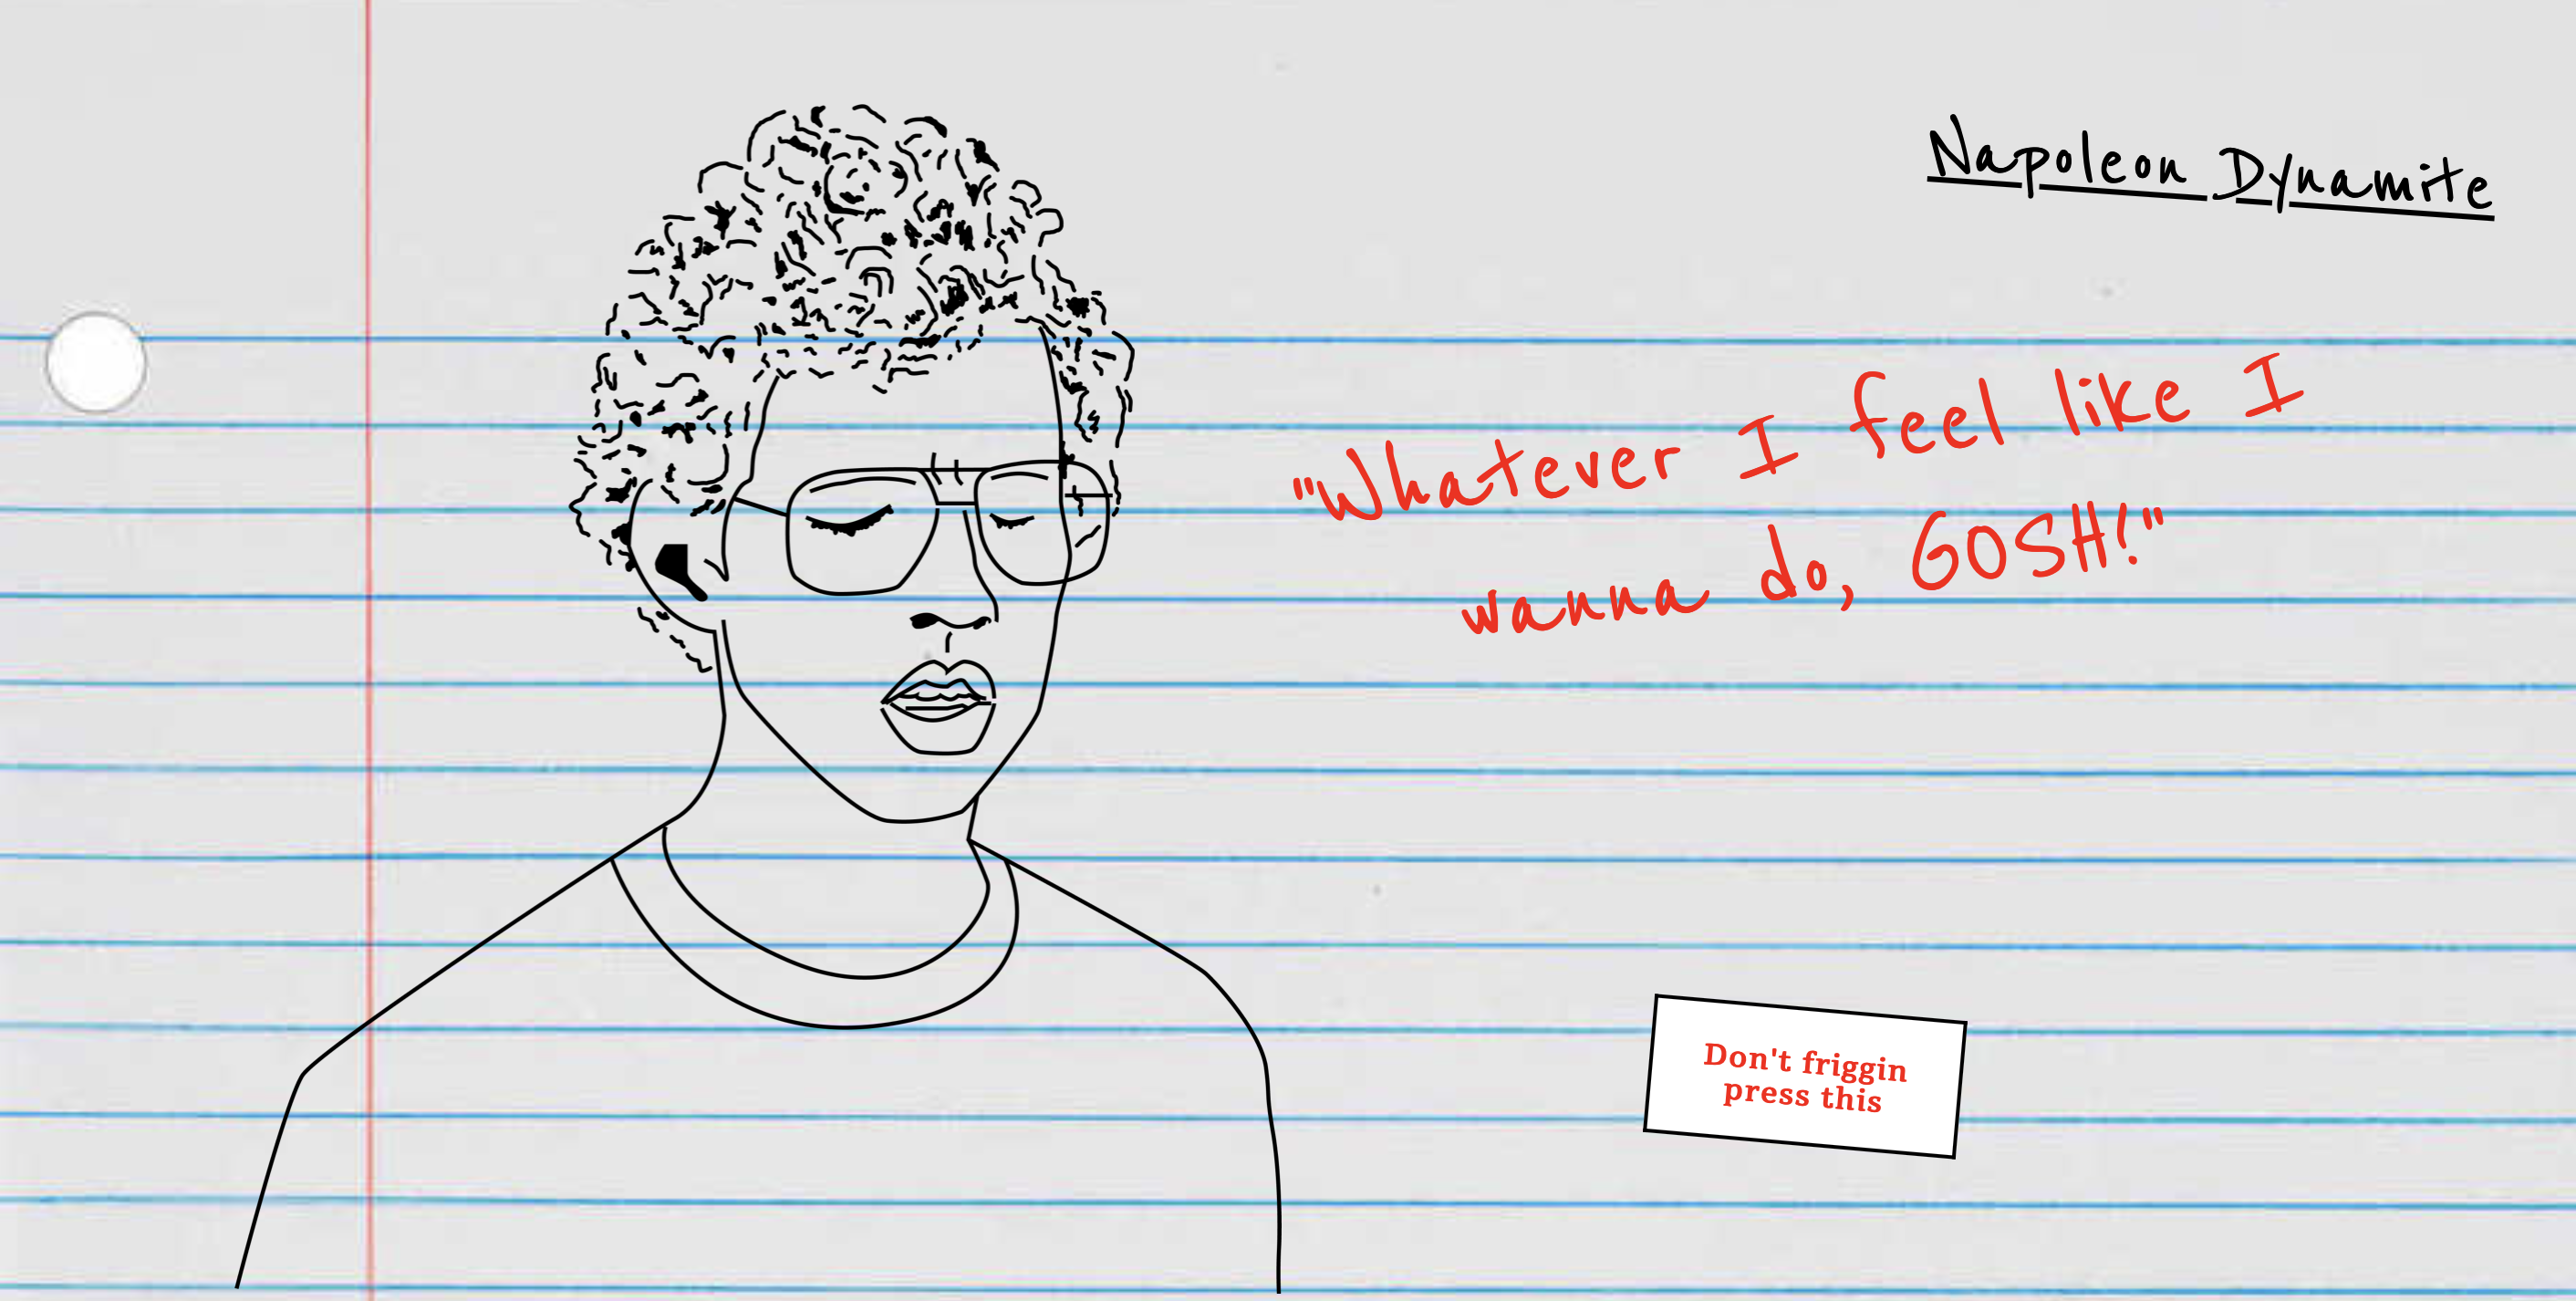 Napoleon Dynamite
"Whatever I feel like I
wanna do, GOSH!"
Don't friggin
press this